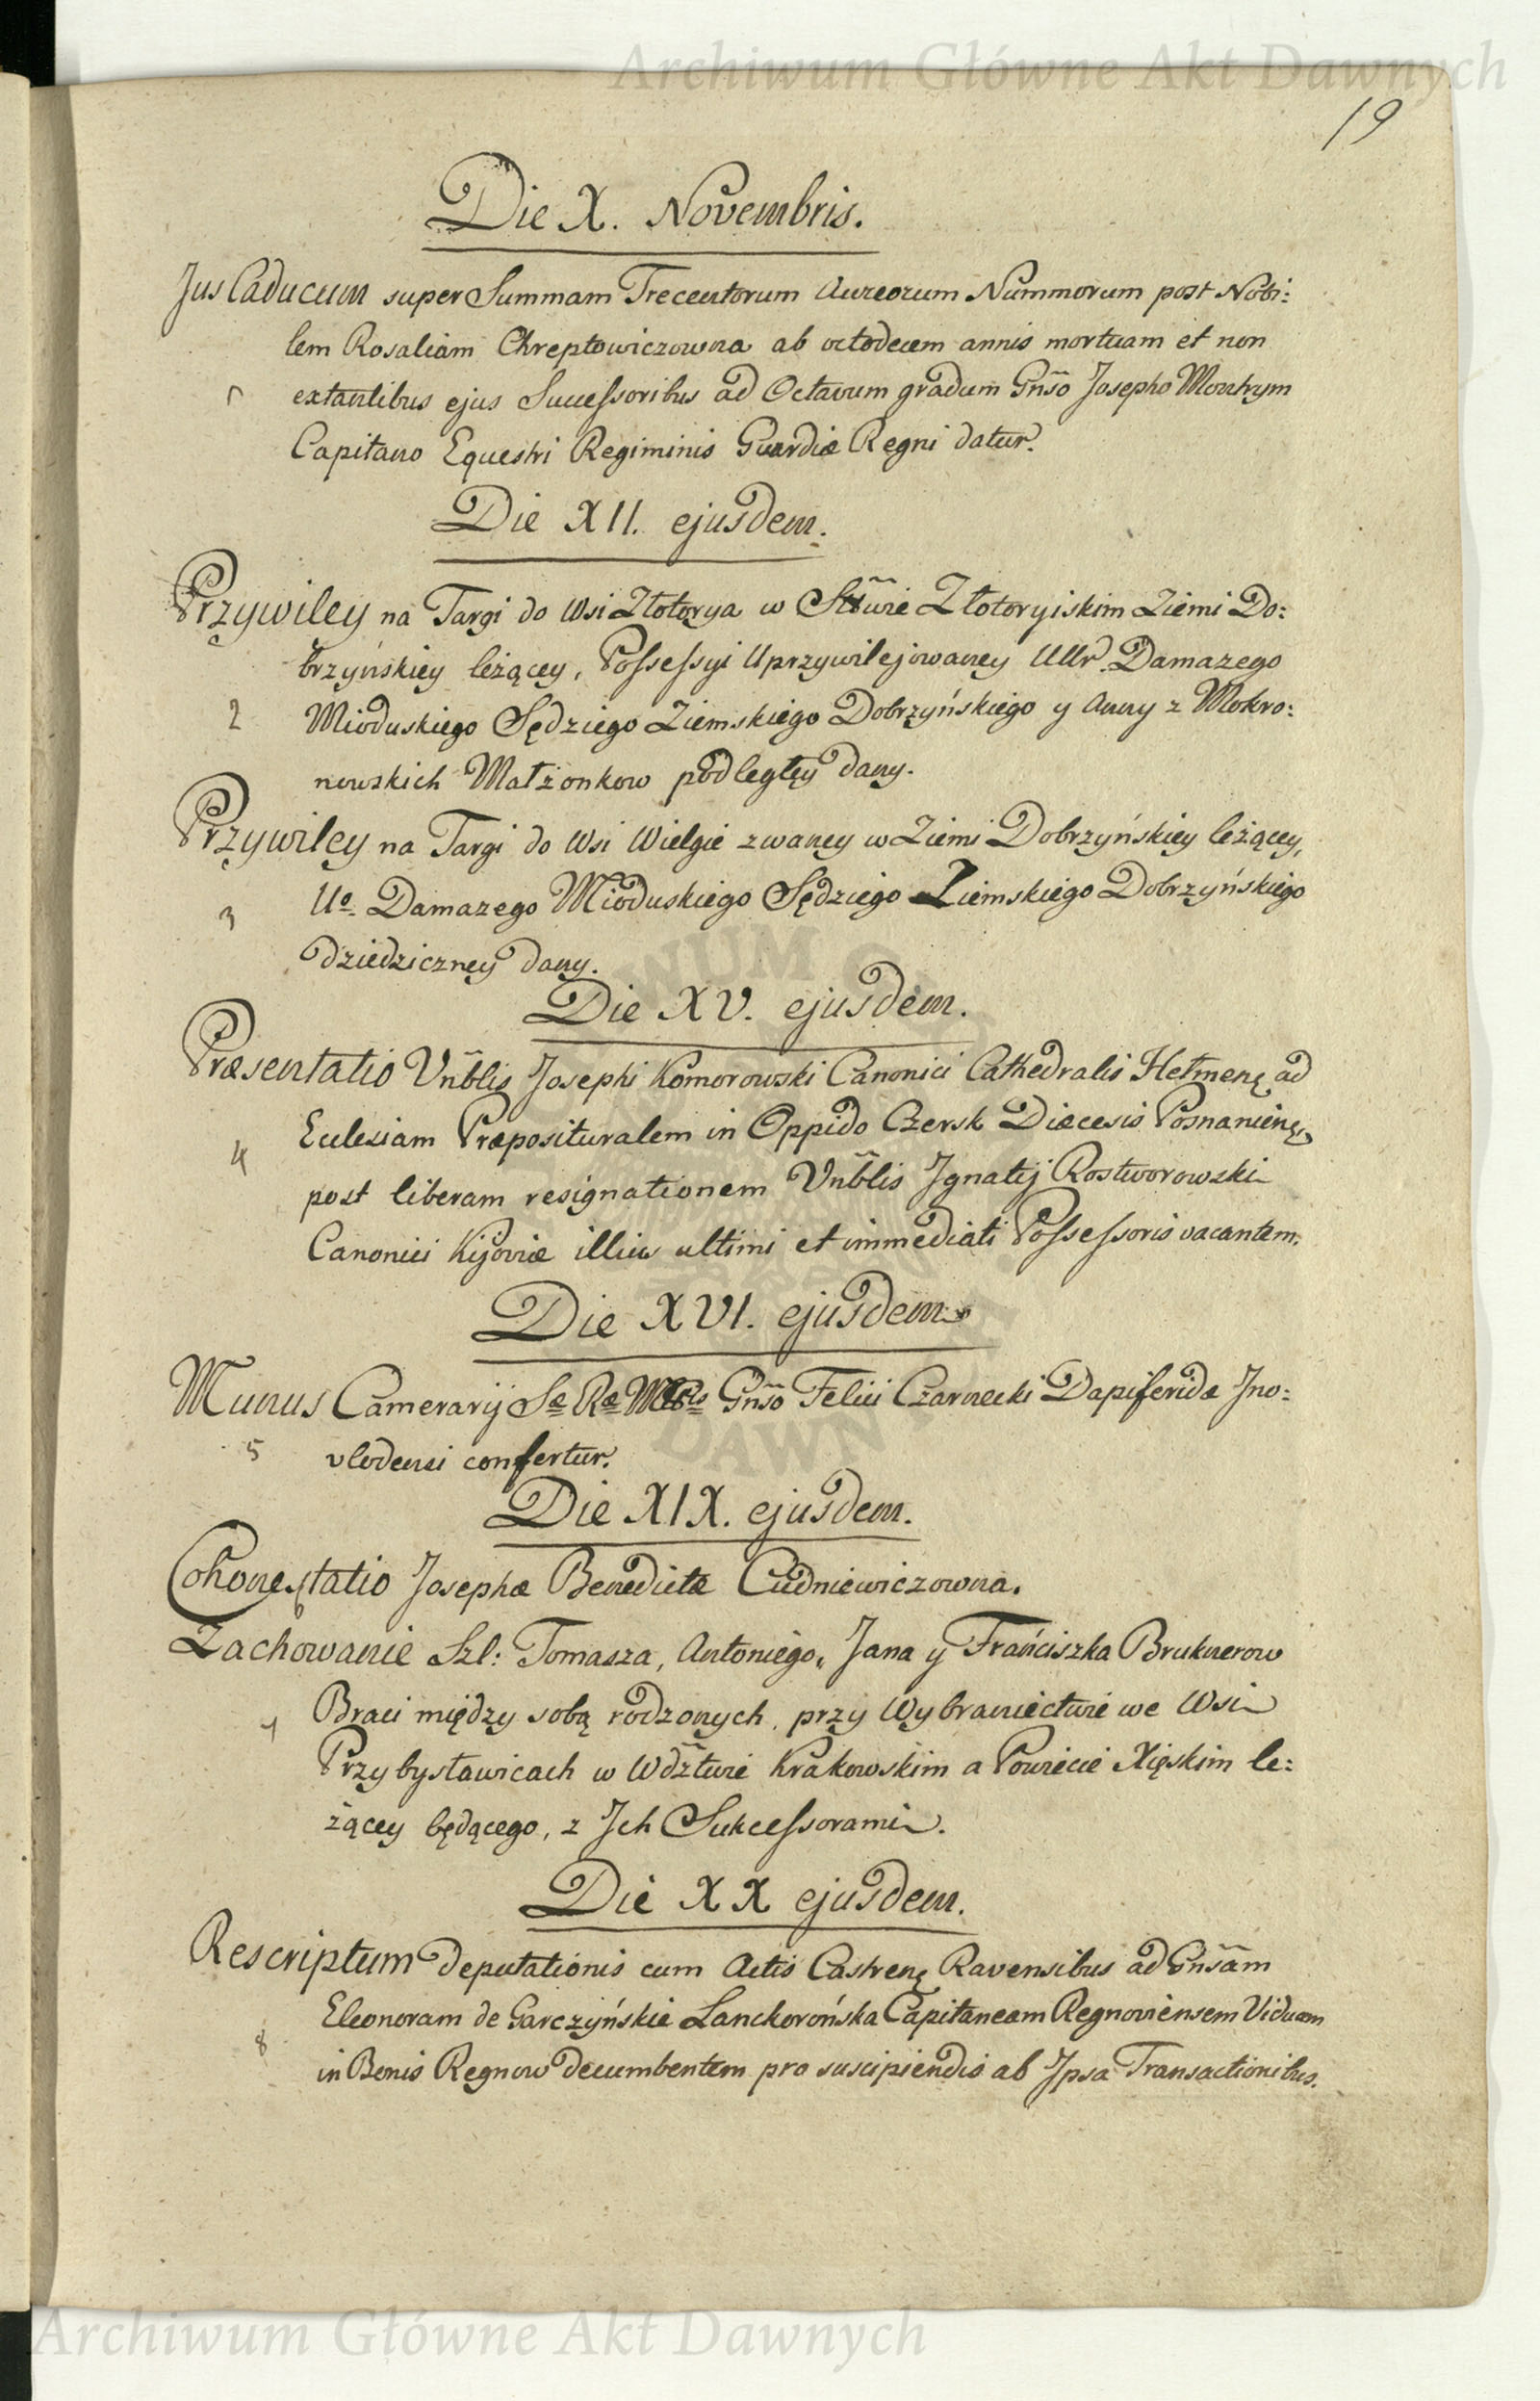 Archiwum Główne Akt Dawnych
19
Die X. Novembris.
Jus Caducum super Summam Trecentorum Aureorum Nummorum post Nobi:
lem Rosaliam Chreptowiczowna ab octodecem annis mortuam et non
extantibus ejus Sucessoribus ad Octavum gradum Gnso Josepho
Capitano Equestri Regiminis Guardiæ Regni datur.
Die XII. ejusdem.
Przywiley na Targi do Wsi Złotorya w Stwie Złotoryiskim Ziemi Do:
brzyńskiey leżącey, Possessyi Uprzywilejowaney UUr. Damazego
2 Mioduskiego Sędziego Ziemskiego Dobrzyńskiego y Anny z Mokro:
nowskich Małżonkow podległęy dany.
Przywiley na Targi do Wsi Wielgie zwaney w Ziemi Dobrzyńskiey leżącey,
3 Uo Damazego Mioduskiego Sędziego Ziemskiego Dobrzyńskiego
dziedziczney dany.
Die XV. ejusdem.
Præsentatio Vnblis Josephi Komorowski Canonici Cathedralis ad
4 Eclesiam Præposituralem in Oppido Czersk Diæcesis
post liberam resignationem Vnblis Jgnatij Rostworowski
Canonici Kijoviæ illius ultimi et immediati Possessoris vacantem.
Die XVI. ejusdem
Munus Camerarij Sæ Ræ Gnso Felici Czarnecki Dapiferidæ Jno:
5 vlodensi confertur.
Die XIX. ejusdem.
Cohonestatio Josephæ Benedictæ Cudniewiczowna.
Zachowanie Szl: Tomasza, Antoniego, Jana y Franciszka Bruknerow
7 Braci między sobą rodzonych, przy Wybraniectwie we Wsi
Przybysławicach w Wdztwie Krakowskim a Powiecie Xięskim le:
żącey będącego, z Jch Sukcessorami.
Die XX ejusdem.
Rescriptum deputationis cum Actis Castrenę Ravensibus ad Gnsam
Eleonoram de Garczyńskie Lanckorońska Capitaneam Regnoviensem Viduam
8 in Bonis Regnow decumbentem pro suscipiendis ab Jpsa Transactionibus.
Archiwum Główne Akt Dawnych